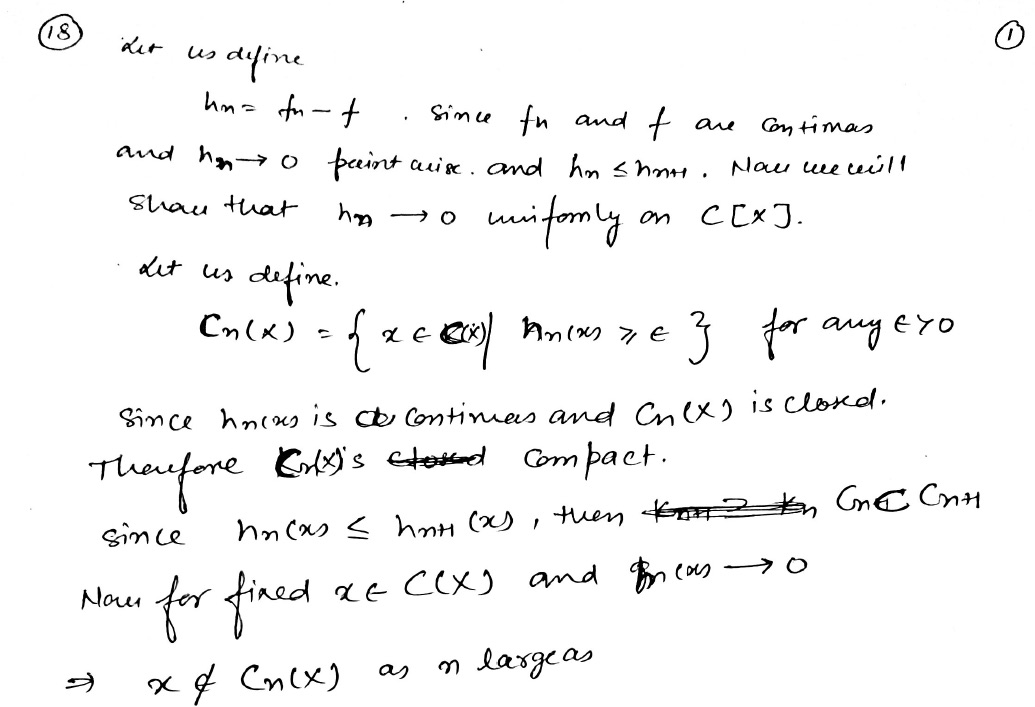 (18) Let us define (1)
hn = fn - f . Since fn and f are continuas
and hn → 0 point wise. and hn ≤ hn+1 . Now we will
Show that hn → 0 uniformly on C[X].
Let us define.
Cn(X) = { x ∈ C(X) | hn(x) ≥ ∈ } for any ∈ > 0
Since hn(x) is continues and Cn(X) is closed.
Therefore Cn(X) is closed compact.
Since hn(x) ≤ hn+1 (x) , then Kn+1 ⊃ Kn Cn ⊂ Cn+1
Now for fixed x ∈ C(X) and fn(x) → 0
⇒ x ∉ Cn(X) as n large as